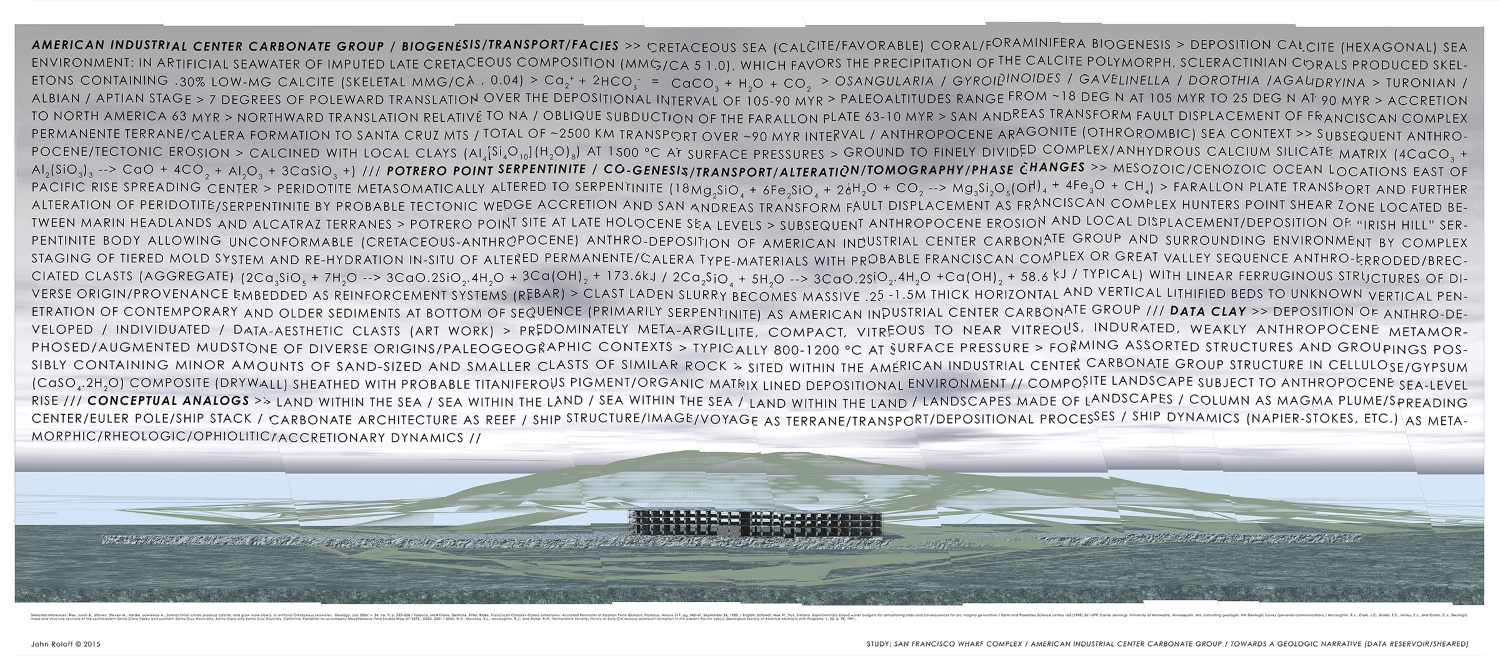 AMERICAN INDUSTRIAL CENTER CARBONATE GROUP / BIOGENESIS/TRANSPORT/FACIES >> CRETACEOUS SEA (CALCITE/FAVORABLE) CORAL/FORAMINIFERA BIOGENESIS > DEPOSITION CALCITE (HEXAGONAL) SEA
ENVIRONMENT: IN ARTIFICIAL SEAWATER OF IMPUTED LATE CRETACEOUS COMPOSITION (MMG/CA 5 1.0), WHICH FAVORS THE PRECIPITATION OF THE CALCITE POLYMORPH, SCLERACTINIAN CORALS PRODUCED SKEL-
ETONS CONTAINING .30% LOW-MG CALCITE (SKELETAL MMG/CA , 0.04) > Ca₂⁺ + 2HCO₃⁻ = CaCO₃ + H₂O + CO₂ > OSANGULARIA / GYROIDINOIDES / GAVELINELLA / DOROTHIA /AGALIDRYINA > TURONIAN /
ALBIAN / APTIAN STAGE > 7 DEGREES OF POLEWARD TRANSLATION OVER THE DEPOSITIONAL INTERVAL OF 105-90 MYR > PALEOALTITUDES RANGE FROM ~18 DEG N AT 105 MYR TO 25 DEG N AT 90 MYR > ACCRETION
TO NORTH AMERICA 63 MYR > NORTHWARD TRANSLATION RELATIVE TO NA / OBLIQUE SUBDUCTION OF THE FARALLON PLATE 63-10 MYR > SAN ANDREAS TRANSFORM FAULT DISPLACEMENT OF FRANCISCAN COMPLEX
PERMANENTE TERRANE/CALERA FORMATION TO SANTA CRUZ MTS / TOTAL OF ~2500 KM TRANSPORT OVER ~90 MYR INTERVAL / ANTHROPOCENE ARAGONITE (OTHROROMBIC) SEA CONTEXT >> SUBSEQUENT ANTHRO-
POCENE/TECTONIC EROSION > CALCINED WITH LOCAL CLAYS (Al₄[Si₄O₁₀](H₂O)₈) AT 1500 ºC AT SURFACE PRESSURES > GROUND TO FINELY DIVIDED COMPLEX/ANHYDROUS CALCIUM SILICATE MATRIX (4CaCO₃ +
Al₂(SiO₃)₃ --> CaO + 4CO₂ + Al₂O₃ + 3CaSiO₃ +) /// POTRERO POINT SERPENTINITE / CO-GENESIS/TRANSPORT/ALTERATION/TOMOGRAPHY/PHASE CHANGES >> MESOZOIC/CENOZOIC OCEAN LOCATIONS EAST OF
PACIFIC RISE SPREADING CENTER > PERIDOTITE METASOMATICALLY ALTERED TO SERPENTINITE (18Mg₂SiO₄ + 6Fe₂SiO₄ + 26H₂O + CO₂ --> Mg₃Si₂O₅(OH)₄ + 4Fe₃O + CH₄) > FARALLON PLATE TRANSPORT AND FURTHER
ALTERATION OF PERIDOTITE/SERPENTINITE BY PROBABLE TECTONIC WEDGE ACCRETION AND SAN ANDREAS TRANSFORM FAULT DISPLACEMENT AS FRANCISCAN COMPLEX HUNTERS POINT SHEAR ZONE LOCATED BE-
TWEEN MARIN HEADLANDS AND ALCATRAZ TERRANES > POTRERO POINT SITE AT LATE HOLOCENE SEA LEVELS > SUBSEQUENT ANTHROPOCENE EROSION AND LOCAL DISPLACEMENT/DEPOSITION OF "IRISH HILL" SER-
PENTINITE BODY ALLOWING UNCONFORMABLE (CRETACEOUS-ANTHROPOCENE) ANTHRO-DEPOSITION OF AMERICAN INDUSTRIAL CENTER CARBONATE GROUP AND SURROUNDING ENVIRONMENT BY COMPLEX
STAGING OF TIERED MOLD SYSTEM AND RE-HYDRATION IN-SITU OF ALTERED PERMANENTE/CALERA TYPE-MATERIALS WITH PROBABLE FRANCISCAN COMPLEX OR GREAT VALLEY SEQUENCE ANTHRO-ERRODED/BREC-
CIATED CLASTS (AGGREGATE) (2Ca₃SiO₅ + 7H₂O --> 3CaO.2SiO₂.4H₂O + 3Ca(OH)₂ + 173.6kJ / 2Ca₂SiO₄ + 5H₂O --> 3CaO.2SiO₂.4H₂O +Ca(OH)₂ + 58.6 kJ / TYPICAL) WITH LINEAR FERRUGINOUS STRUCTURES OF DI-
VERSE ORIGIN/PROVENANCE EMBEDDED AS REINFORCEMENT SYSTEMS (REBAR) > CLAST LADEN SLURRY BECOMES MASSIVE .25 -1.5M THICK HORIZONTAL AND VERTICAL LITHIFIED BEDS TO UNKNOWN VERTICAL PEN-
ETRATION OF CONTEMPORARY AND OLDER SEDIMENTS AT BOTTOM OF SEQUENCE (PRIMARILY SERPENTINITE) AS AMERICAN INDUSTRIAL CENTER CARBONATE GROUP /// DATA CLAY >> DEPOSITION OF ANTHRO-DE-
VELOPED / INDIVIDUATED / DATA-AESTHETIC CLASTS (ART WORK) > PREDOMINATELY META-ARGILLITE, COMPACT, VITREOUS TO NEAR VITREOUS, INDURATED, WEAKLY ANTHROPOCENE METAMOR-
PHOSED/AUGMENTED MUDSTONE OF DIVERSE ORIGINS/PALEOGEOGRAPHIC CONTEXTS > TYPICALLY 800-1200 ºC AT SURFACE PRESSURE > FORMING ASSORTED STRUCTURES AND GROUPINGS POS-
SIBLY CONTAINING MINOR AMOUNTS OF SAND-SIZED AND SMALLER CLASTS OF SIMILAR ROCK > SITED WITHIN THE AMERICAN INDUSTRIAL CENTER CARBONATE GROUP STRUCTURES IN CELLULOSE/GYPSUM
(CaSO₄.2H₂O) COMPOSITE (DRYWALL) SHEATHED WITH PROBABLE TITANIFEROUS PIGMENT/ORGANIC MATRIX LINED DEPOSITIONAL ENVIRONMENT // COMPOSITE LANDSCAPE SUBJECT TO ANTHROPOCENE SEA-LEVEL
RISE /// CONCEPTUAL ANALOGS >> LAND WITHIN THE SEA / SEA WITHIN THE LAND / SEA WITHIN THE SEA / LAND WITHIN THE LAND / LANDSCAPES MADE OF LANDSCAPES / COLUMN AS MAGMA PLUME/SPREADING
CENTER/EULER POLE/SHIP STACK / CARBONATE ARCHITECTURE AS REEF / SHIP STRUCTURE/IMAGE/VOYAGE AS TERRANE/TRANSPORT/DEPOSITIONAL PROCESSES / SHIP DYNAMICS (NAPIER-STOKES, ETC.) AS META-
MORPHIC/RHEOLOGIC/OPHIOLITIC/ACCRETIONARY DYNAMICS //
John Roloff © 2015
STUDY: SAN FRANCISCO WHARF COMPLEX / AMERICAN INDUSTRIAL CENTER CARBONATE GROUP / TOWARDS A GEOLOGIC NARRATIVE (DATA RESERVOIR/SHEARED)